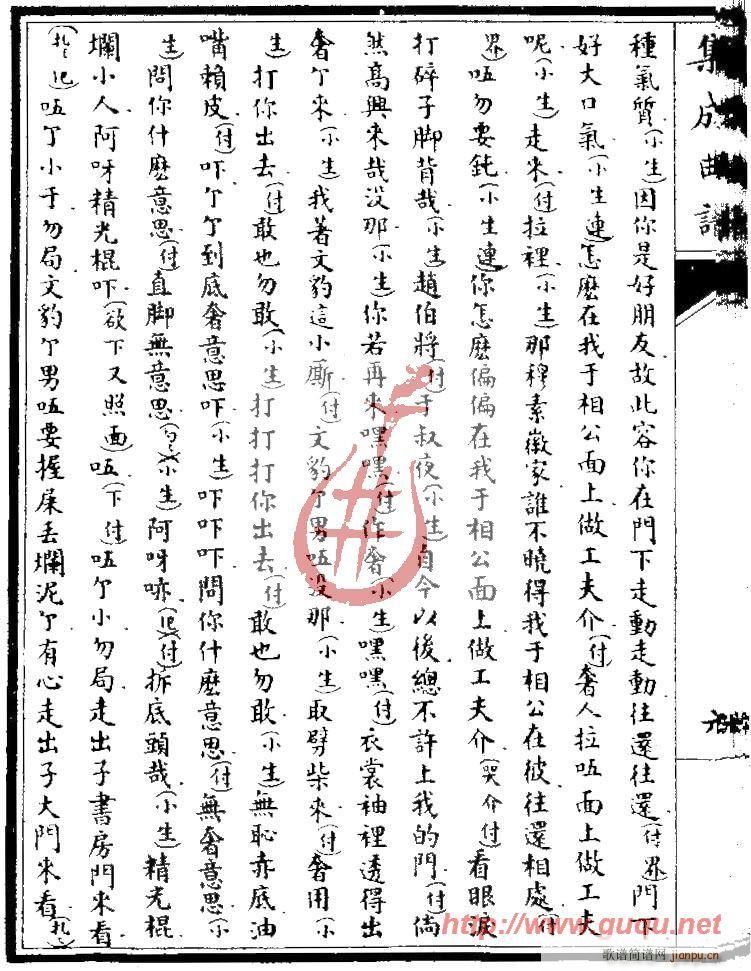 集成曲譜
種氣質(小生)因你是好朋友故此容你在門下走動走動往還往還(付界)門下
好大口氣(小生連)怎麽在我于相公面上做工夫介(付)奢人拉㕶面上做工夫
呢(小生)走來(付)拉裡(小生)那穆素徽家誰不曉得我于相公在彼往還相處(付
界)㕶勿要鈍(小生連)你怎麽偏偏在我于相公面上做工夫介(哭介付)看眼淚
打碎子脚背哉(小生)趙伯將(付)于叔夜(小生)自今以後總不許上我的門(付)倘
然高興來哉没那(小生)你若再來嘿嘿(付)作奢(小生)嘿嘿(付)衣裳袖裡透得出
奢个來(小生)我著文豹這小厮(付)文豹个男㕶没那(小生)取劈柴來(付)奢用(小
生)打你出去(付)敢也勿敢(小生)打打打你出去(付)敢也勿敢(小生)無恥赤底油
嘴賴皮(付)吓个个到底奢意思吓(小生)吓吓吓問你什麽意思(付)無奢意思(小
生)問你什麽意思(付)直脚無意思(小生)阿呀啐(付)拆底頭哉(小生)精光棍
爛小人阿呀精光棍吓(欲下又照面)㕶(下付)㕶个小勿局走出子書房門來看
㕶个小于勿局文豹个男㕶要握屎丢爛泥个有心走出子大門來看
http://www.guqu.net
歌谱简谱网 jianpu.cn